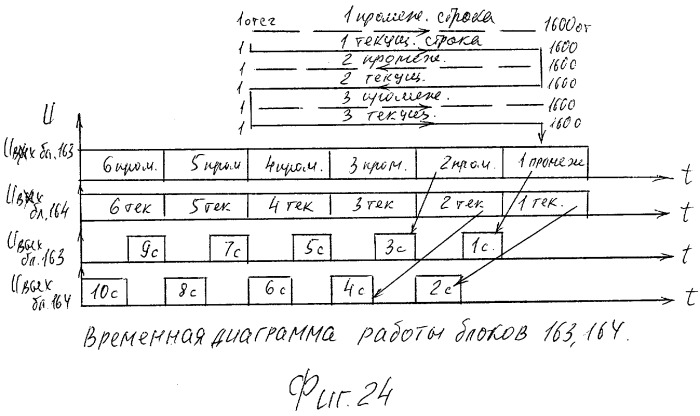 1 отсг 1 промеж. строка 1600 от
1 1 текущ. строка 1600
1 2 промеж. 1600
1 2 текущ. 1600
1 3 промеж. 1600
1 3 текущ. 1600
U
Uвх бл.163 6 пром. 5 пром 4 пром. 3 пром. 2 пром. 1 промеж t
Uвх бл.164 6 тек 5 тек 4 тек 3 тек 2 тек 1 тек. t
Uвых бл.163 9с 7с 5с 3с 1с. t
Uвых бл.164 10с 8с 6с 4с 2с t
Временная диаграмма работы блоков 163, 164.
Фиг. 24